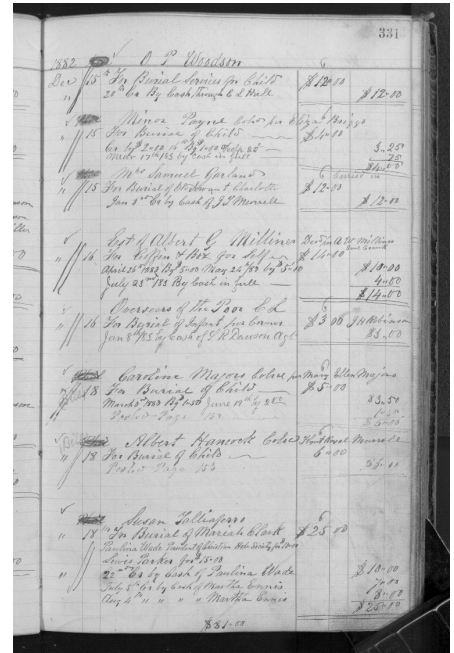 331
1882 O P Woodson
Dec 15 For Burial Services for Child $12.00
" 20th Cr By Cash Through C L Hall $12.00
Minor Payne Cold for Briggs
" 15 For Burial of Child $4.00
Cr by 2.00 16th By 3.25
17th 183 by Cash in full 75
$4.00
Mrs Samuel Garland
" 15 For Burial of Charlotte $12.00
Jan 3rd Cr by Cash of J L Murrell $12.00
Est of Albert G Milliner
" 16 For Coffin & Box for Self $14.00
April 26th 1883 By 5.00 May 24th 83 by 5.00 $10.00
July 23rd 183 By Cash in full 4.00
$14.00
Overseers of the Poor C L
" 16 For Burial of Infant $3.00
Jan 8th 183 by Cash of J R Lawson Agt $3.00
Caroline Majors Cold for Mary Ellen Majors
" 18 For Burial of Child $5.00
March 3rd 1883 By 1.50 June 12th by $3.50
Posted Page 153
Albert Hancock Cold Murrell
" 18 For Burial of Child 6.00
Posted Page 153 $6.00
Susan Talliaferro
" 18 For Burial of Mariah Clark $25.00
Paulina Wade President of
Lewis Parker for 15.00
" 22nd Cr by Cash of Paulina Wade $10.00
July 5th Cr by Cash of Martha Ennis 7.00
Aug 4th " " " " Martha Ennis 8.00
$25.00
$81.00